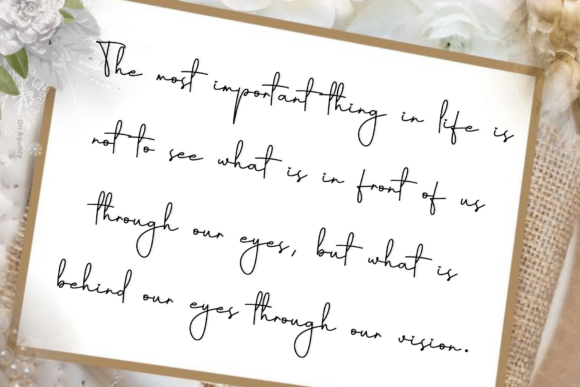 The most important thing in life is
not to see what is in front of us
through our eyes, but what is
behind our eyes through our vision.
On Agency